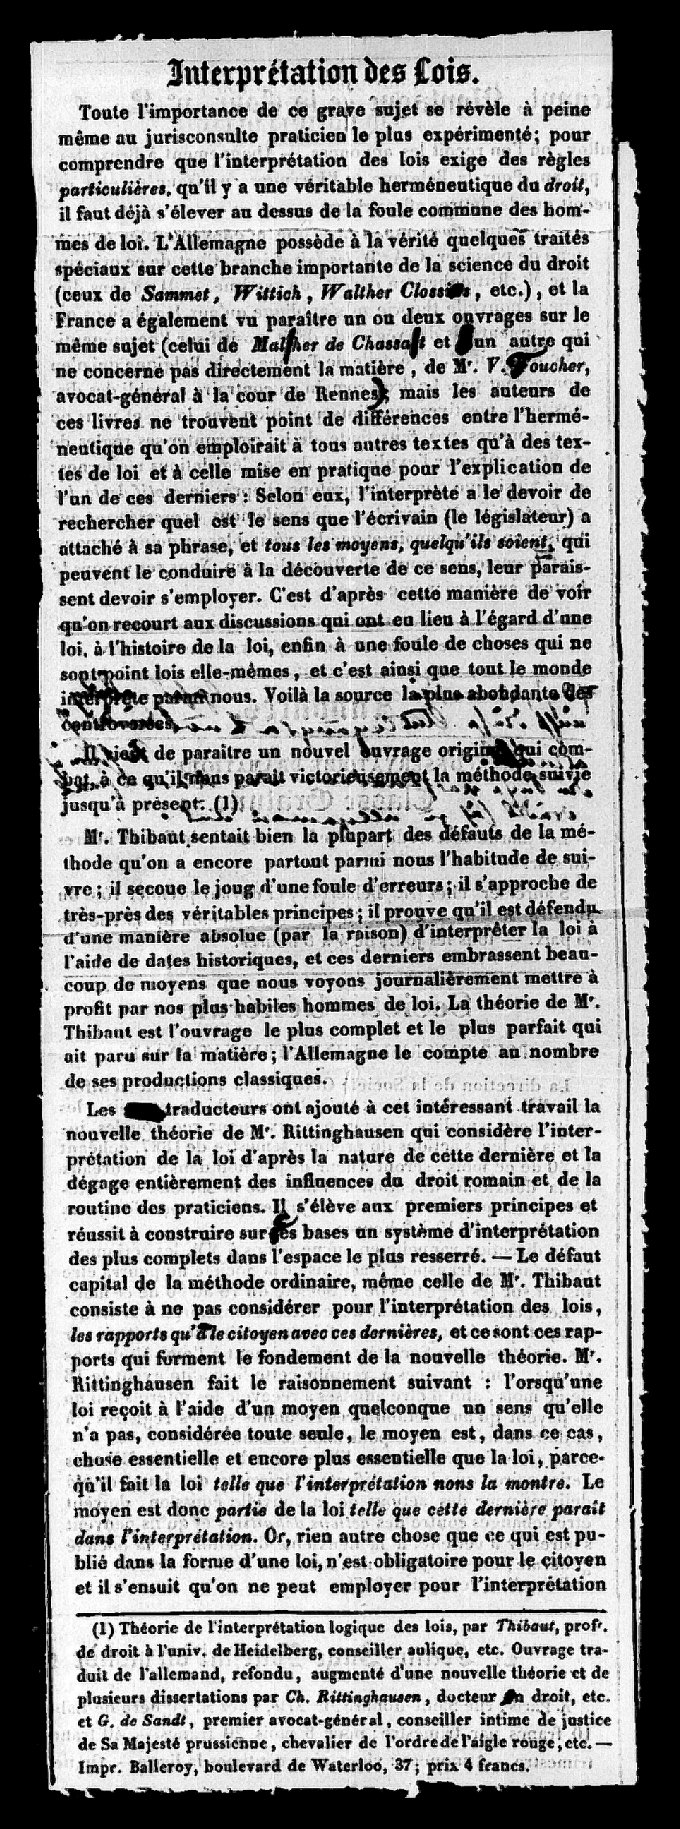 Interprétation des Lois.
Toute l'importance de ce grave sujet se révèle à peine
même au jurisconsulte praticien le plus expérimenté; pour
comprendre que l'interprétation des lois exige des règles
particulières, qu'il y a une véritable herméneutique du droit,
il faut déjà s'élever au dessus de la foule commune des hom-
mes de loi. L'Allemagne possède à la vérité quelques traités
spéciaux sur cette branche importante de la science du droit
(ceux de Sammet, Wittich, Walther Clossius, etc.), et la
France a également vu paraître un ou deux ouvrages sur le
même sujet (celui de Malher de Chassat et un autre qui
ne concerne pas directement la matière, de Mr. V. Foucher,
avocat-général à la cour de Rennes); mais les auteurs de
ces livres ne trouvent point de différences entre l'hermé-
neutique qu'on emploirait à tous autres textes qu'à des tex-
tes de loi et à celle mise en pratique pour l'explication de
l'un de ces derniers: Selon eux, l'interprète a le devoir de
rechercher quel est le sens que l'écrivain (le législateur) a
attaché à sa phrase, et tous les moyens, quelqu'ils soient, qui
peuvent le conduire à la découverte de ce sens, leur parais-
sent devoir s'employer. C'est d'après cette manière de voir
qu'on recourt aux discussions qui ont eu lieu à l'égard d'une
loi, à l'histoire de la loi, enfin à une foule de choses qui ne
sont point lois elle-mêmes, et c'est ainsi que tout le monde
interprète parmi nous. Voilà la source la plus abondante des
controverses.
Il vient de paraître un nouvel ouvrage original qui com-
bat, à ce qu'il nous paraît victorieusement la méthode suivie
jusqu'à présent. (1)
Mr. Thibaut sentait bien la plupart des défauts de la mé-
thode qu'on a encore partout parmi nous l'habitude de sui-
vre; il secoue le joug d'une foule d'erreurs; il s'approche de
très-près des véritables principes; il prouve qu'il est défendu
d'une manière absolue (par la raison) d'interprêter la loi à
l'aide de dates historiques, et ces derniers embrassent beau-
coup de moyens que nous voyons journalièrement mettre à
profit par nos plus habiles hommes de loi. La théorie de Mr.
Thibaut est l'ouvrage le plus complet et le plus parfait qui
ait paru sur la matière; l'Allemagne le compte au nombre
de ses productions classiques.
Les traducteurs ont ajouté à cet intéressant travail la
nouvelle théorie de Mr. Rittinghausen qui considère l'inter-
prétation de la loi d'après la nature de cette dernière et la
dégage entièrement des influences du droit romain et de la
routine des praticiens. Il s'élève aux premiers principes et
réussit à construire sur ces bases un système d'interprétation
des plus complets dans l'espace le plus resserré. — Le défaut
capital de la méthode ordinaire, même celle de Mr. Thibaut
consiste à ne pas considérer pour l'interprétation des lois,
les rapports qu'a le citoyen avec ces dernières, et ce sont ces rap-
ports qui forment le fondement de la nouvelle théorie. Mr.
Rittinghausen fait le raisonnement suivant : l'orsqu'une
loi reçoit à l'aide d'un moyen quelconque un sens qu'elle
n'a pas, considérée toute seule, le moyen est, dans ce cas,
chose essentielle et encore plus essentielle que la loi, parce-
qu'il fait la loi telle que l'interprétation nons la montre. Le
moyen est donc partie de la loi telle que cette dernière parait
dans l'interprétation. Or, rien autre chose que ce qui est pu-
blié dans la forme d'une loi, n'est obligatoire pour le citoyen
et il s'ensuit qu'on ne peut employer pour l'interprétation
(1) Théorie de l'interprétation logique des lois, par Thibaut, profr.
de droit à l'univ. de Heidelberg, conseiller aulique, etc. Ouvrage tra-
duit de l'allemand, refondu, augmenté d'une nouvelle théorie et de
plusieurs dissertations par Ch. Rittinghausen, docteur en droit, etc.
et G. de Sandt, premier avocat-général, conseiller intime de justice
de Sa Majesté prussienne, chevalier de l'ordre de l'aigle rouge, etc. —
Impr. Balleroy, boulevard de Waterloo, 37; prix 4 francs.